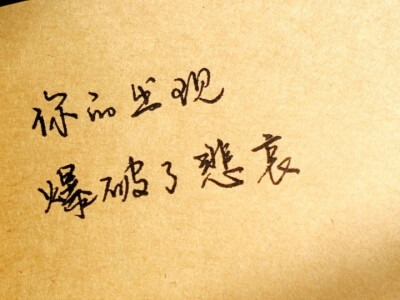 你的出现
爆破了悲哀